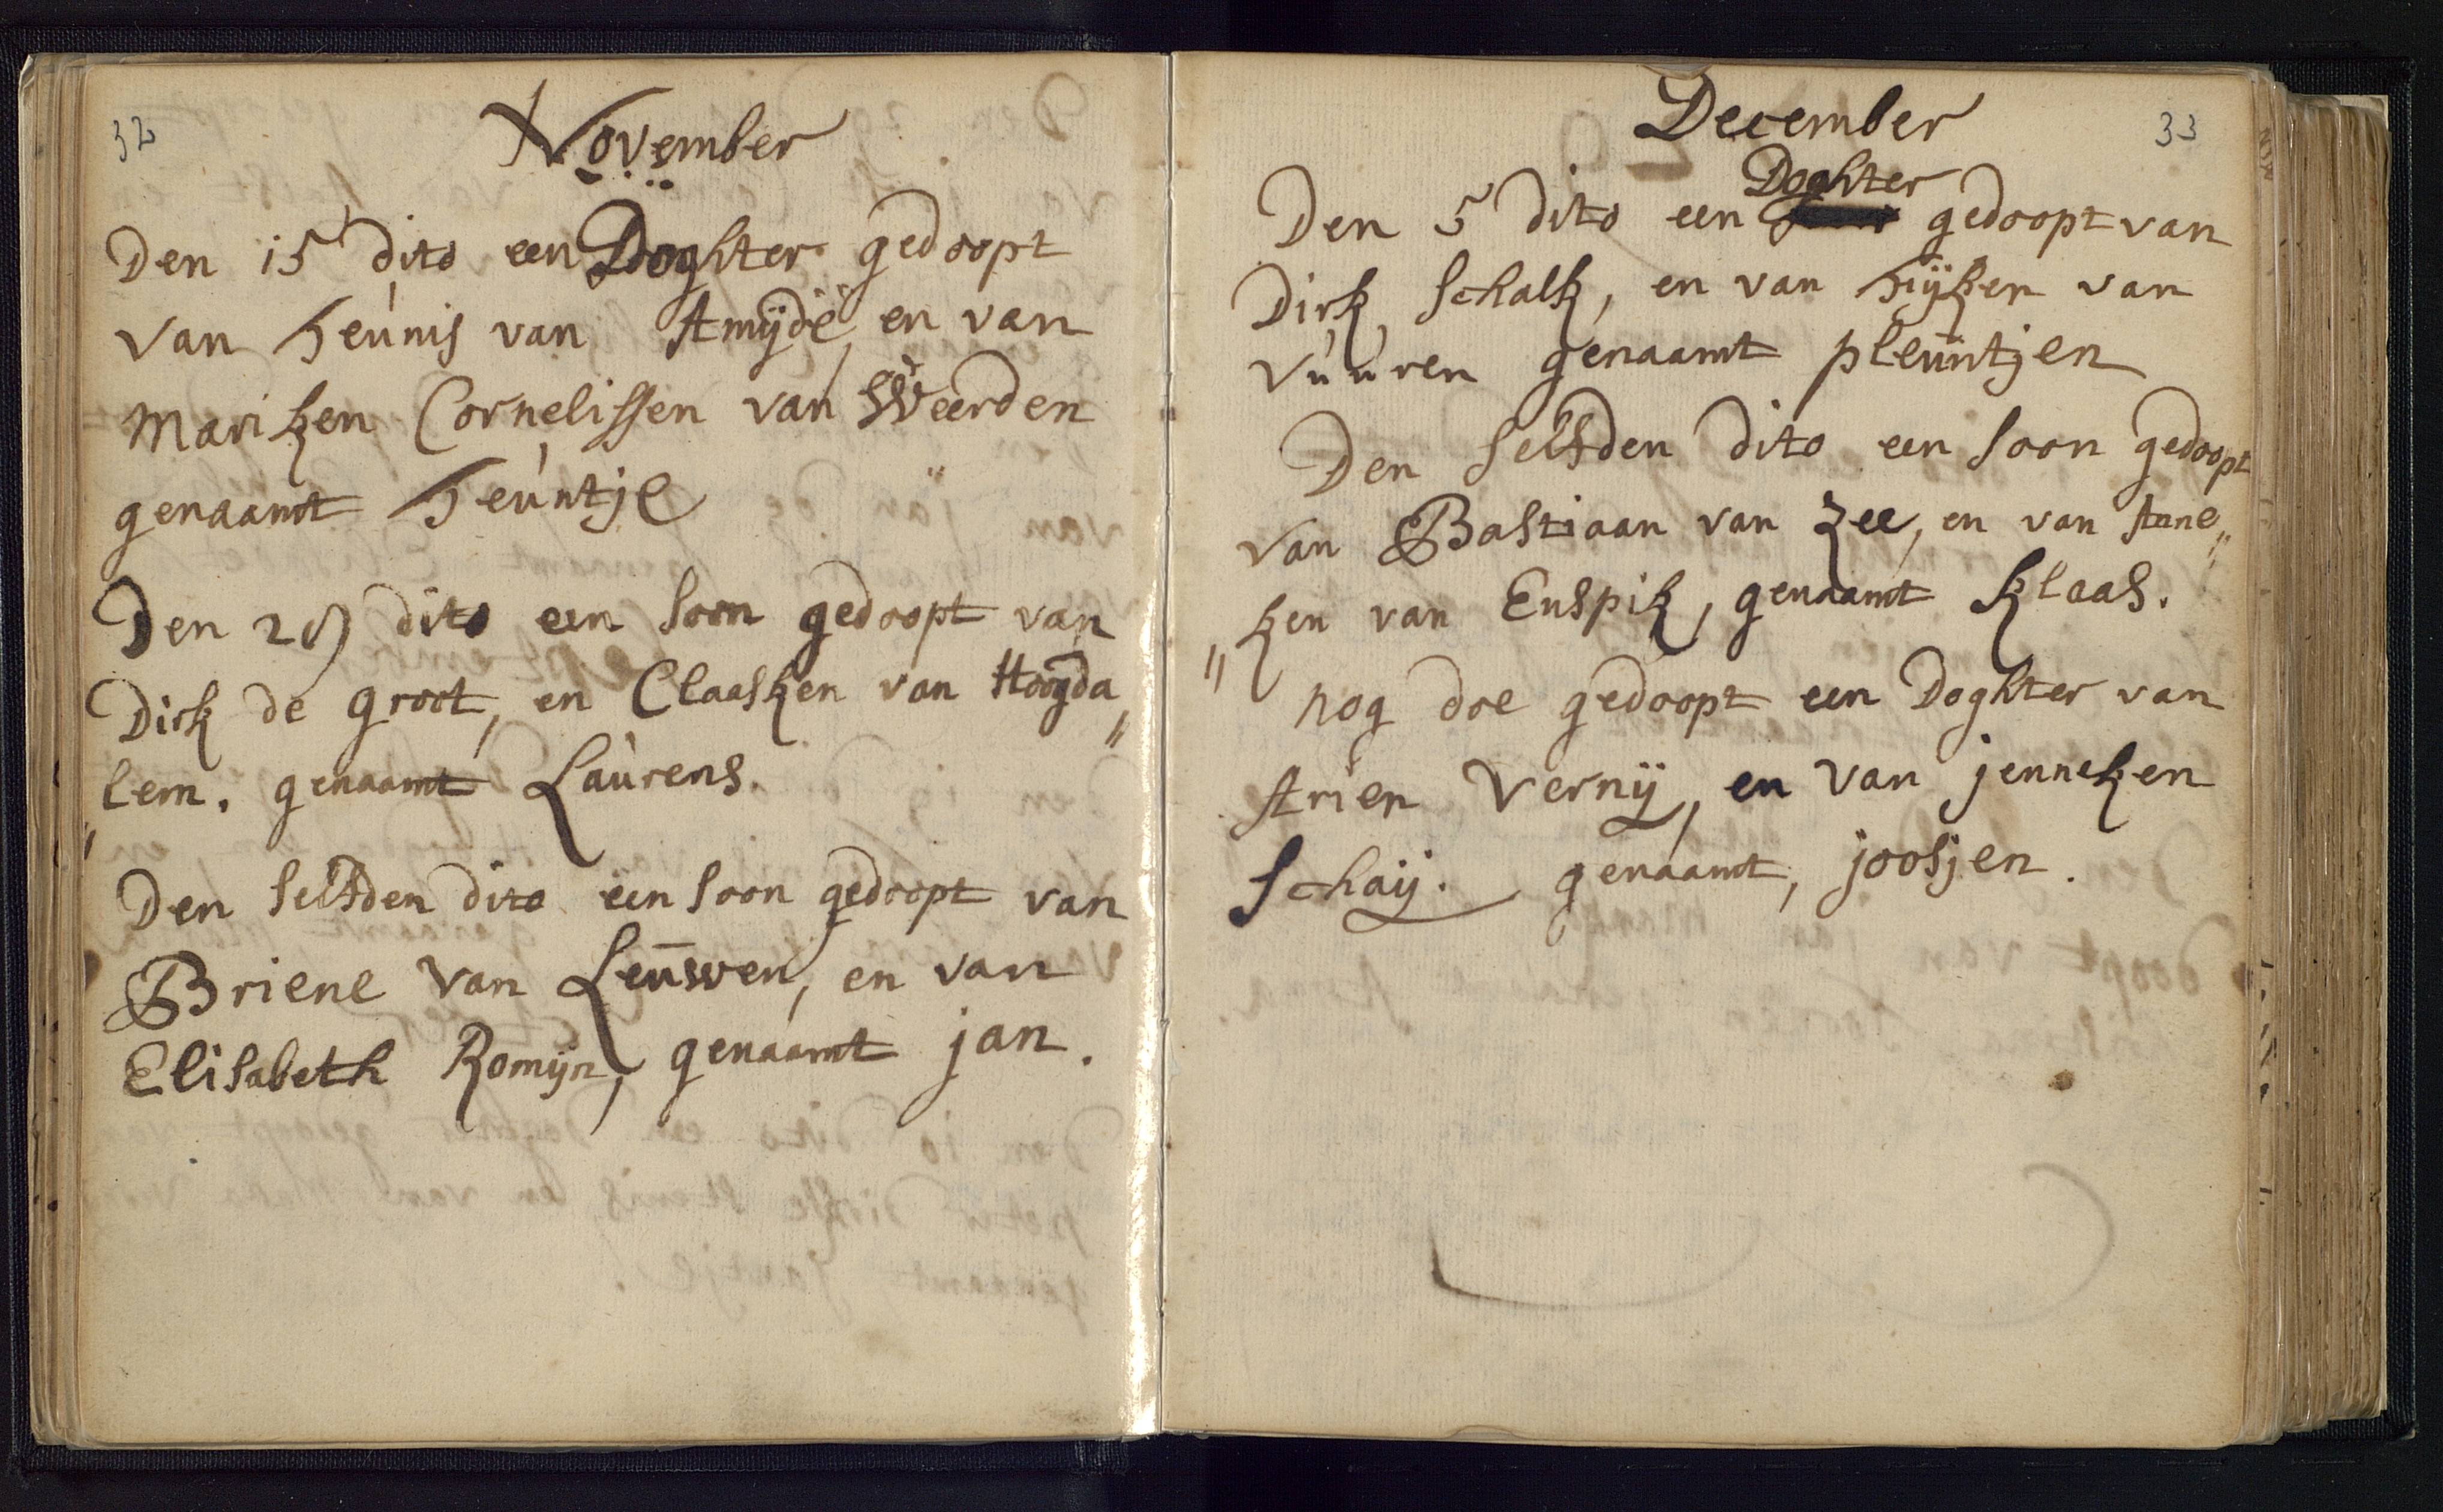 32
November
Den 15 dito een Doghter gedoopt
van Teunis van Amijde, en van
Mariken Cornelissen van Weerden
genaamt Teuntje
Den 29 dito een soon gedoopt van
Dirk de groot, en Claasken van Hoogda„
„lem. genaamt Laurens.
Den selfden dito een soon gedoopt van
Briene van Leuwen, en van
Elisabeth Romijn, genaamt jan.
33
December
Doghter
Den 5 dito een gedoopt van
Dirk Schalk, en van Tijken van
Vuuren genaamt pleuntjen
Den selfden dito een soon gedoopt
van Bastiaan van Zee, en van Ane„
„ken van Enspik, genaamt klaas.
nog doe gedoopt een Doghter van
Arien Vernij, en van jenneken
Schaij. genaamt, joosjen.